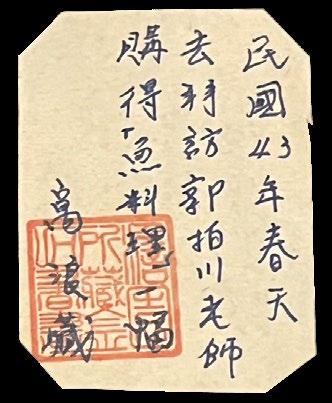 民國43年春天
去拜訪郭柏川老師
購得「魚料理」一幅
萬浪藏